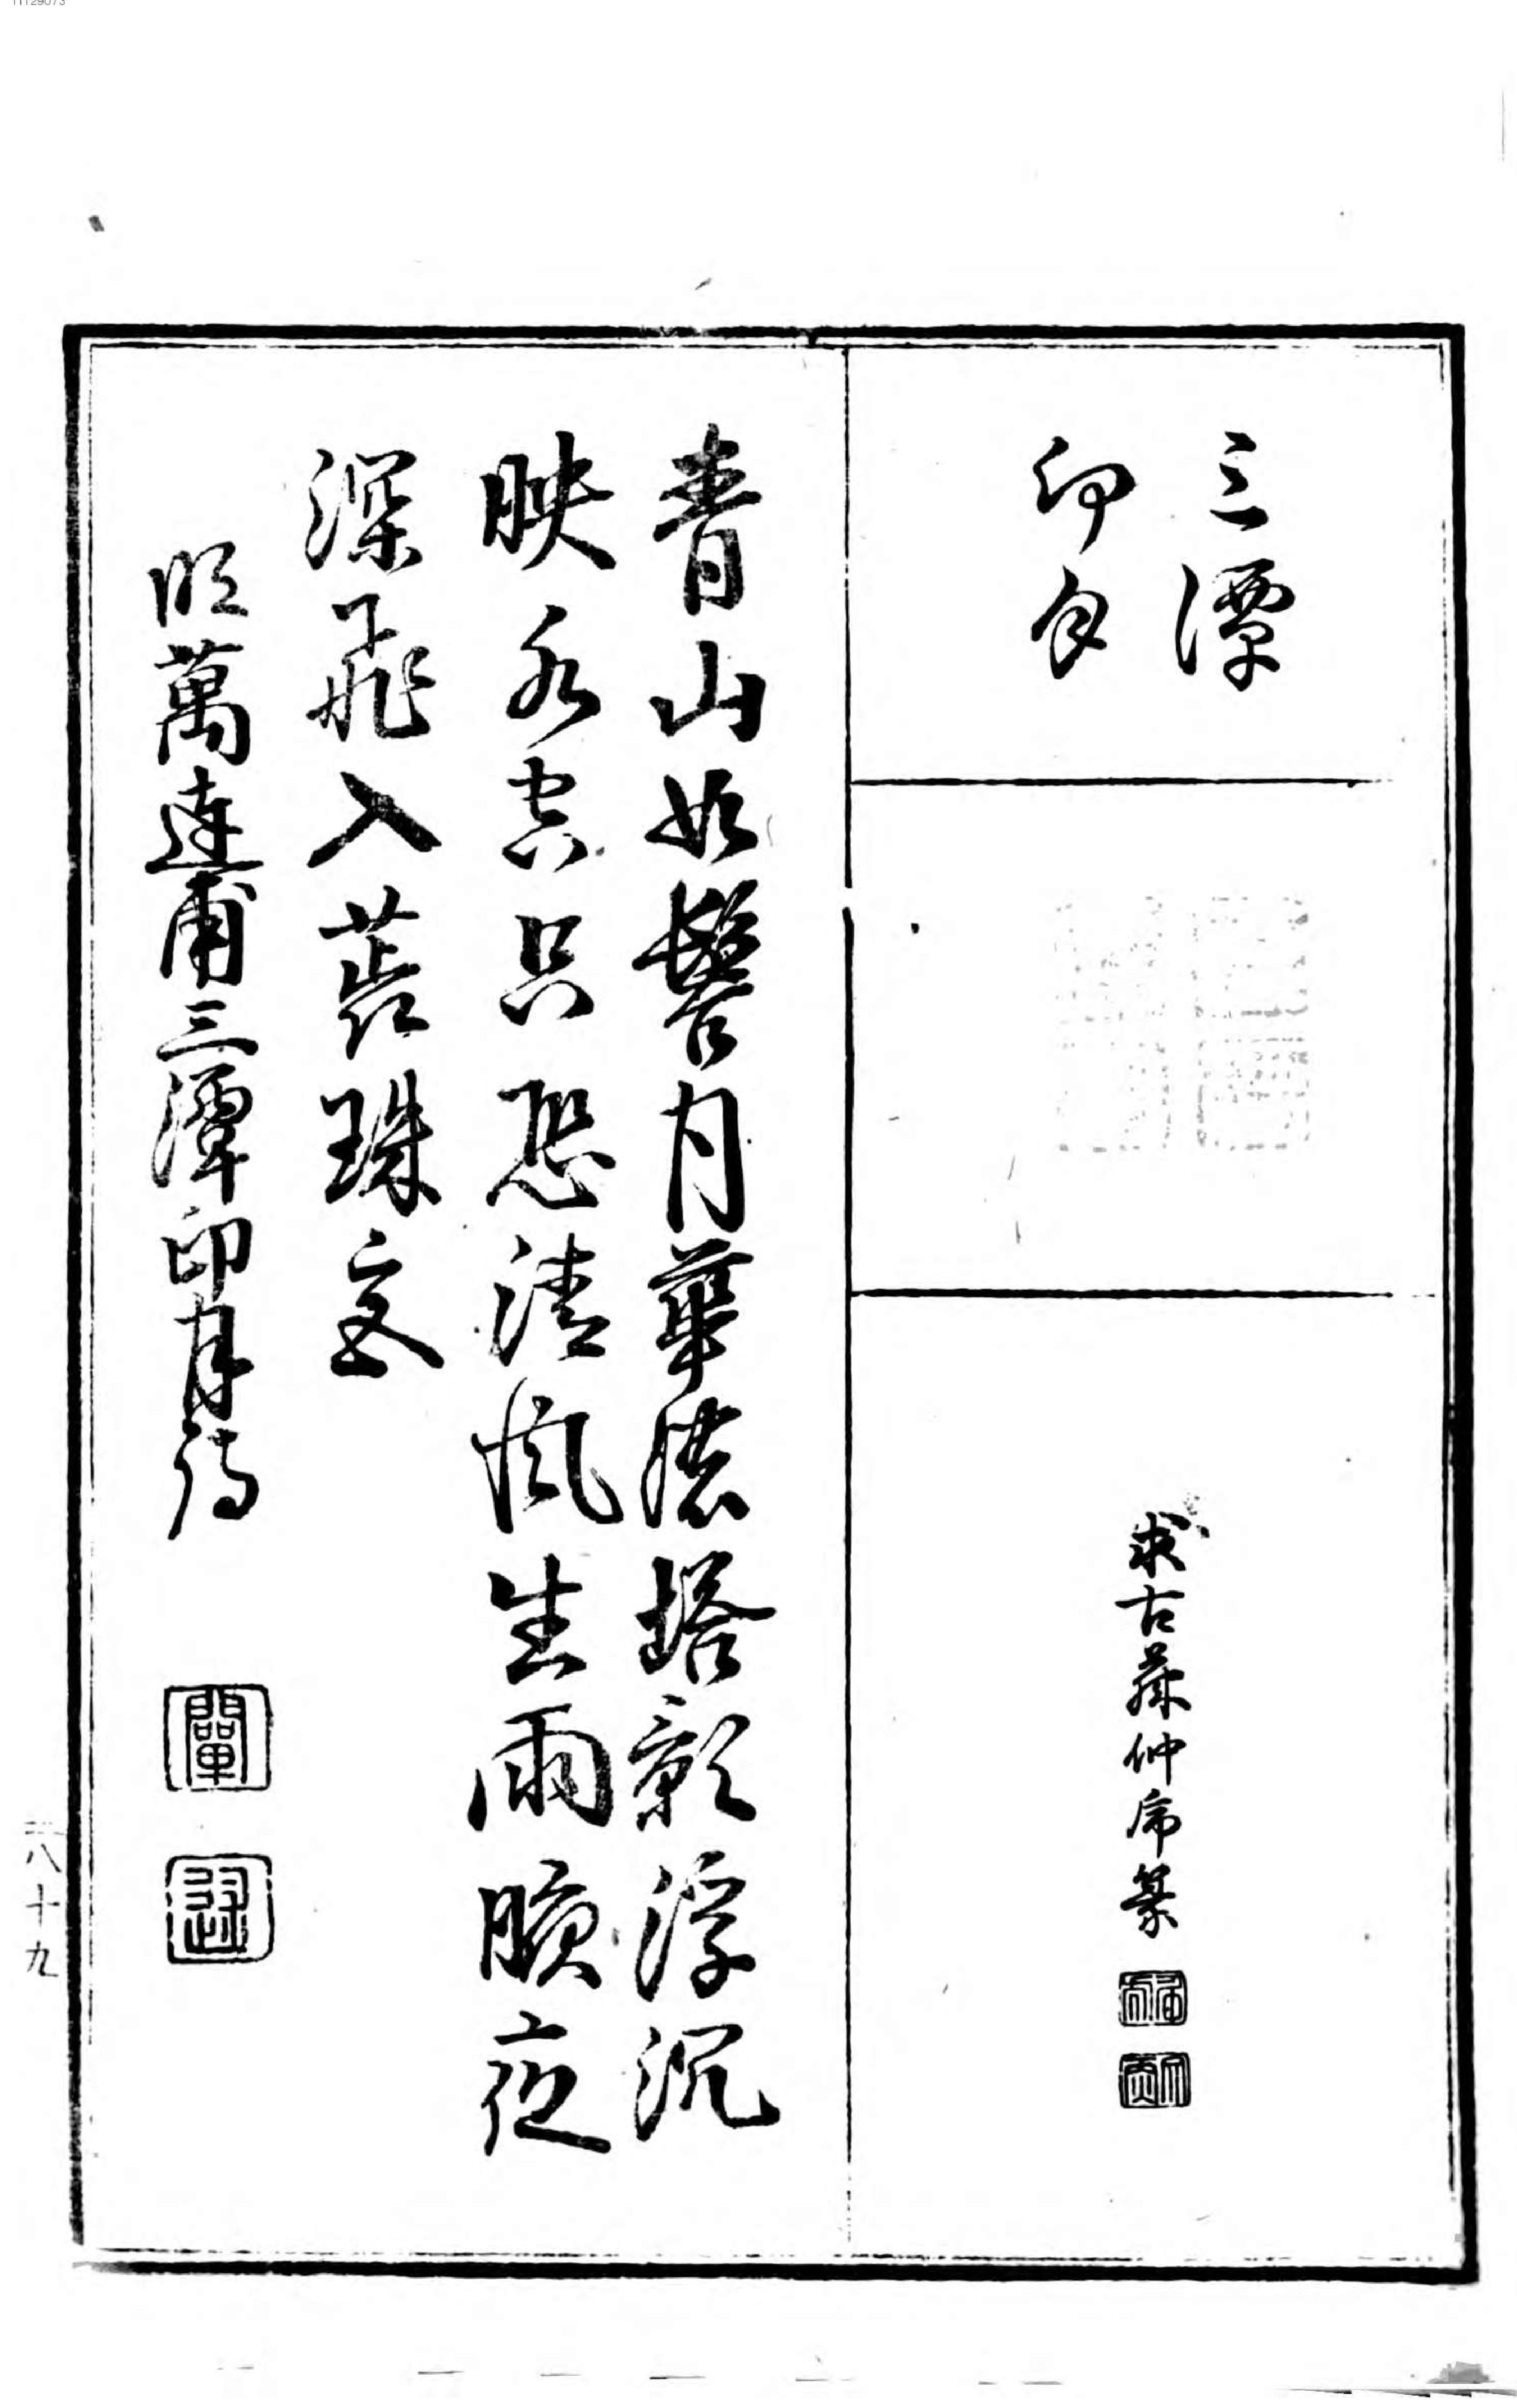 三潭
印月
求古藤仲席篆
青山如鬟月華濃塔影浮沉
映水空只恐清風生雨腋夜
深飛入蕊珠宮
明萬達甫三潭印月詩
八十九